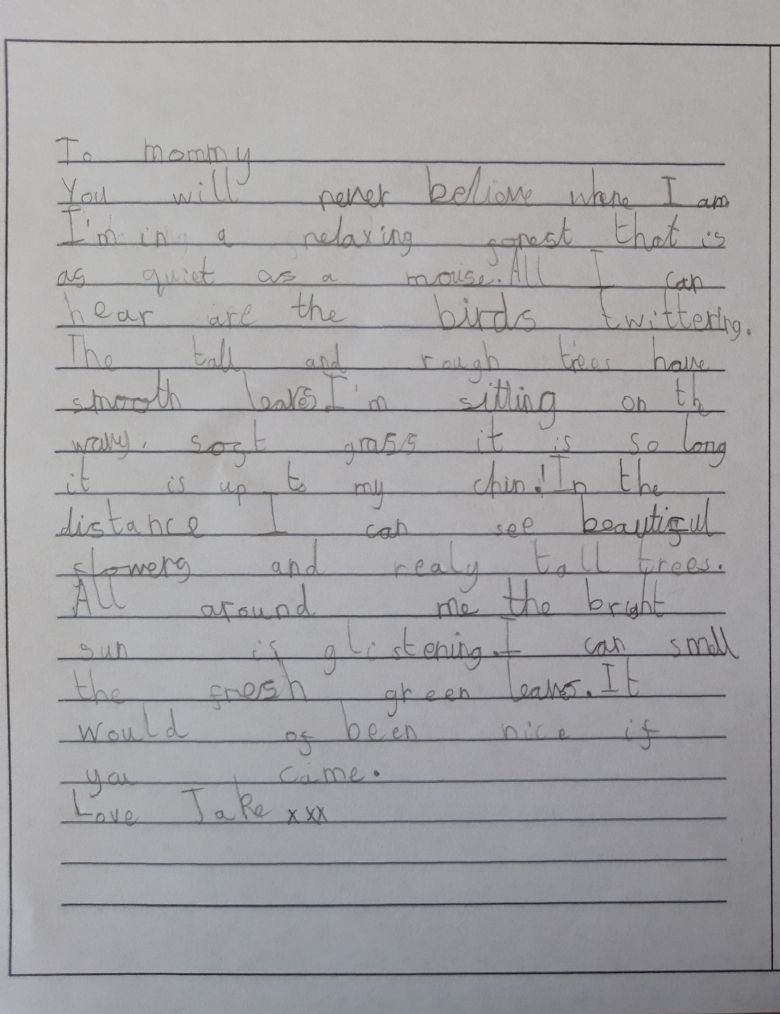 To mommy
You will never believe where I am
I'm in a relaxing forest that is
as quiet as a mouse. All I can
hear are the birds twittering.
The tall and rough trees have
smooth leaves I'm sitting on th
wavy, soft grass it is so long
it is up to my chin! In the
distance I can see beautiful
flowers and realy tall trees.
All around me the bright
sun is glistening. I can smell
the fresh green leaves. It
would of been nice if
you came.
Love Jake xxx